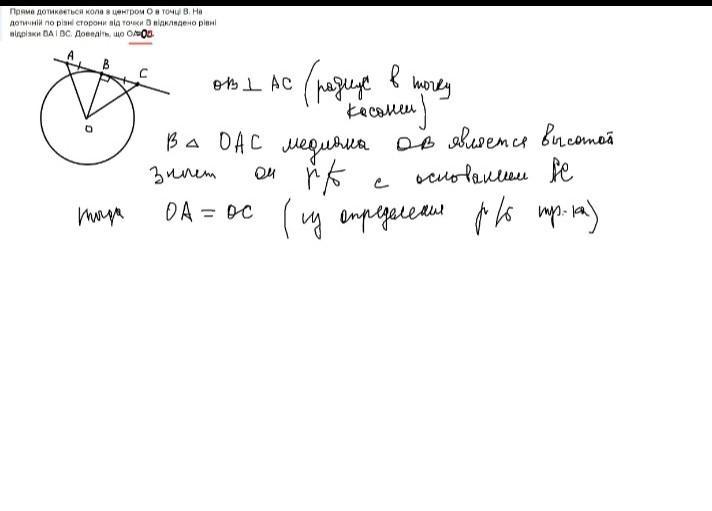 Пряма дотикається кола з центром О в точці В. На
дотичній по різні сторони від точки В відкладено рівні
відрізки ВА і ВС. Доведіть, що ОА=ОС.
A
B
C
O
OB ⊥ AC (радиус в точку
касания)
В △ OAC медиана OB является высотой
значит он р/б с основанием AC
тогда OA = OC (из определения р/б тр-ка)